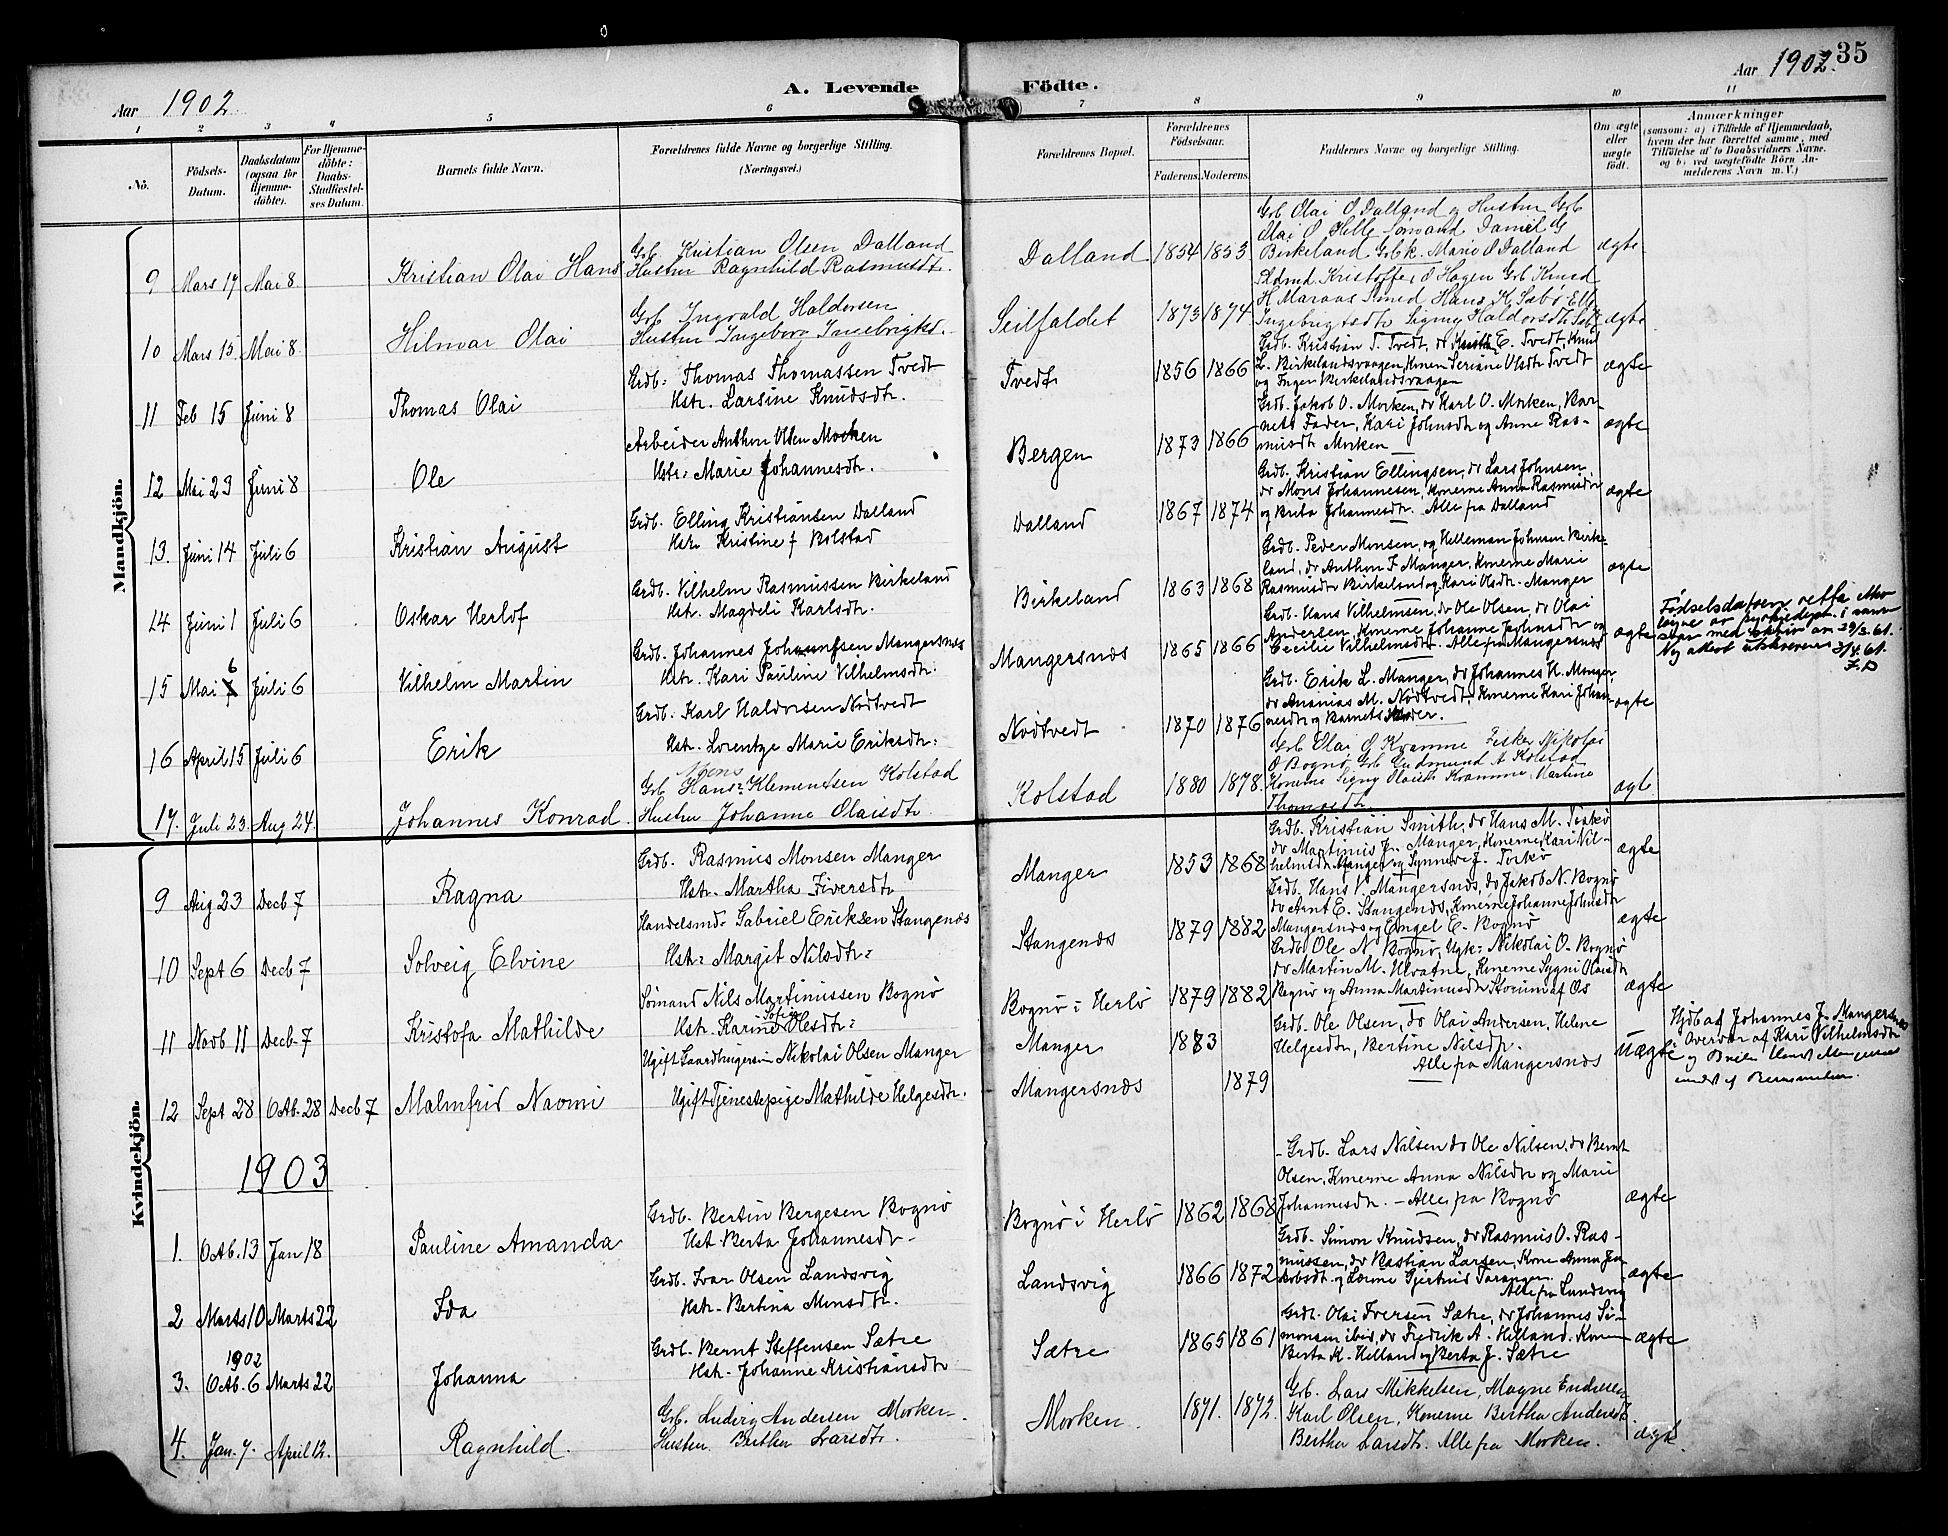 35
Aar 1902
A. Levende Födte.
Aar 1902.
1 2 3 4 5 6 7 8 9 10 11
No.
Födsels-Datum.
Daabsdatum (ogsaa for Hjemme-döbte).
For Hjemme-döbte: Daabs-Stadfæstel-ses Datum.
Barnets fulde Navn.
Forældrenes fulde Navne og borgerlige Stilling. (Næringsvei.)
Forældrenes Bopæl.
Forældrenes Födselsaar.
Faderens. Moderens.
Faddernes Navne og borgerlige Stilling.
Om ægte eller uægte födt.
Anmærkninger
(saasom: a) i Tilfælde af Hjemmedaab, hvem der har forrettet samme, med Tilföielse af to Daabsvidners Navne, og b) ved uægtefödte Börn An-melderens Navn m. V.)
Mandkjön.
9 Mars 17 Mai 8 Kristian Olai Hans
Grb Kristian Olsen Dalland
Hustru Ragnhild Rasmusdtr.
Dalland 1854 1853
Grb Olai O Dalland og Hustru Grb
Birkeland Grbk. Marie O Dalland
ægte
10 Mars 15 Mai 8 Hilmar Olai
Grb Ingvald Haldorsen
Hustru Ingeborg Ingebrigtsd.
Seilfaldet 1873 1874
Kristoffer O Hagen Grb Knud
Ingebrigtsdtr Signy Haldorsdtr
ægte
11 Feb 15 Juni 8 Thomas Olai
Grdb. Thomas Thomassen Tvedt
Hstr. Larsine Knudsdtr.
Tvedt 1856 1866
Grdb. Kristian T. Tvedt, do E. Tvedt, Knud
L. Birkelandsvaagen, Konen Seriane Olsdtr Tvedt
og Inger Birkelandsvaagen
ægte
12 Mai 23 Juni 8 Ole
Arbeider Anthon Olsen Morken
Hstr. Marie Johannesdtr.
Bergen 1873 1866
Grdb. Jakob O. Morken, do Karl O. Morken, Bar-
nets Fader, Kari Johnsdtr og Anne Ras-
musdtr Morken
ægte
13. Juni 14 Juli 6 Kristian August
Grdb. Elling Kristiansen Dalland
Hstr. Kristine f Bolstad
Dalland 1867 1874
Grdb. Kristian Ellingsen, do Lars Johnsen
do Mons Johannesen, Konerne Anna Rasmusdtr
og Brita Johannesdtr. Alle fra Dalland
ægte
14 Juni 1 Juli 6 Oskar Herlof
Grdb. Vilhelm Rasmussen Birkeland
Hstr. Magdeli Karlsdtr.
Birkeland 1863 1868
Grdb. Peder Monsen, og Helleman Johnsen Birke-
land, do Anthon F Manger, Konerne Marie
Rasmusdtr Birkeland og Kari Olsdtr Manger
ægte
15 Mai 6 Juli 6 Vilhelm Martin
Grdb. Johannes Johannesen Mangersnæs
Hstr. Kari Pauline Vilhelmsdtr.
Mangersnæs 1865 1866
Grdb. Hans Vilhelmsen, do Ole Olsen, do Olai
Andersen, Konerne Johanne Johnsdtr og
Cecilie Vilhelmsdtr. Alle fra Mangersnæs
ægte
Fødselsdatoen retta
løyve av kyrkjedept. i
med 29/3.61.
Ny attest utskreven 3/4.61.
16 April 15 Juli 6 Erik
Grdb. Karl Haldorsen Nödtvedt
Hstr. Lorentze Marie Eriksdtr.
Nödtvedt 1870 1876
Grdb. Erik L. Manger, do Johannes H. Manger
do Ananias M. Nödtvedt, Konerne Kari Johan-
nesdtr og Barnets Moder.
ægte
17. Juli 23 Aug 24. Johannes Konrad.
Mons
Grb Hans Klementsen Kolstad
Hustru Johanne Olaisdtr
Kolstad 1880 1878.
Grb Olai O Kvamme Fisker Nikolai
O Bognö Grb Gudmund A Kolstad
Konerne Signy Olaisdtr Kvamme, Martine
Thomasdtr
ægt
Kvindekjön.
9 Aug 23 Decb 7 Ragna
Grdb. Rasmus Monsen Manger
Hstr. Martha Iversdtr
Manger 1853 1868
Grdb. Kristian Smith, do Hans M. Toskø
do Martinus J. Manger, Konerne Kari Vil-
helmsdtr Manger og Synneve J. Toskø
ægte
10 Sept 6 Decb 7 Solveig Elvine
Handelsmd. Gabriel Eriksen Stangenæs
Hstr. Margit Nilsdtr.
Stangenæs 1879 1882
Grdb. Hans V. Mangersnæs, do Jakob N. Bognö
do Arnt E. Stangenæs, Konerne Johanne Johnsdtr
Mangersnæs og Engel E. Bognö
ægte
11 Novb 11 Decb 7 Kristofa Mathilde
Sömand Nils Martinussen Bognö
Sofie
Hstr. Karine Olesdtr.
Bognö i Herlö 1879 1882
Grdb. Ole N Bognö, Ugk. Nikolai O. Bognö
do Martin M. Konerne Sygni Olaisdtr
Bognö og Anna Martinusdtr af Os
ægte
12 Sept 28 Oktb. 28 Decb 7 Malmfrid Naomi
Ugift Gaardbrugersøn Nikolai Olsen Manger
Ugift Tjenestepige Mathilde Helgesdtr.
Manger 1883
Mangersnæs 1879
Grdb. Ole Olsen, do Olai Andersen, Helene
Helgesdtr, Bertine Nilsdtr.
Alle fra Mangersnæs
uægte
Hjdb af Johannes J. Mangersnæs
i Overvær af Kari Vilhelmsdtr
1903
1. Oktb. 13 Jan 18 Pauline Amanda
Grdb. Bertin Bergesen Bognö
Hst. Berta Johannesdtr.
Bognö i Herlö 1862 1868
Grdb. Lars Nilsen do Ole Nilsen, do Bernt
Olsen, Konerne Anna Nilsdtr og Marie
Johannesdtr. - Alle fra Bognö
ægte
2 Marts 10 Marts 22 Ida
Grdb. Ivar Olsen Landsvig
Hstr. Bertina Monsdtr.
Landsvig 1866 1872
Grdb. Simon Knudsen, do Rasmus O. Ras-
mussen, do Bastian Larsen, Kone Anna Ja-
kobsdt. og Lovine Gjertrud
Alle fra Landsvig
ægte
1902
3. Oktb. 6 Marts 22 Johanna
Grdb. Bernt Steffensen Sætre
Hstr. Johanne Kristiansdtr
Sætre 1865 1861
Grdb. Olai Iversen Sætre, do Johannes Si-
monsen ibid, do Fredrik A. Helland. Kone
Berta K. Helland og Berta J. Sætre
ægte
4. Jan. 7. April 12. Ragnhild.
Grb. Ludvig Andersen Morken.
Hustru Berthe Larsdtr.
Morken. 1871. 1872.
Grb. Lars Mikkelsen, Magne Endresen
Karl Olsen, Konerne Bertha Andersdtr.
Berthe Larsdtr. Alle fra Morken.
ægte.